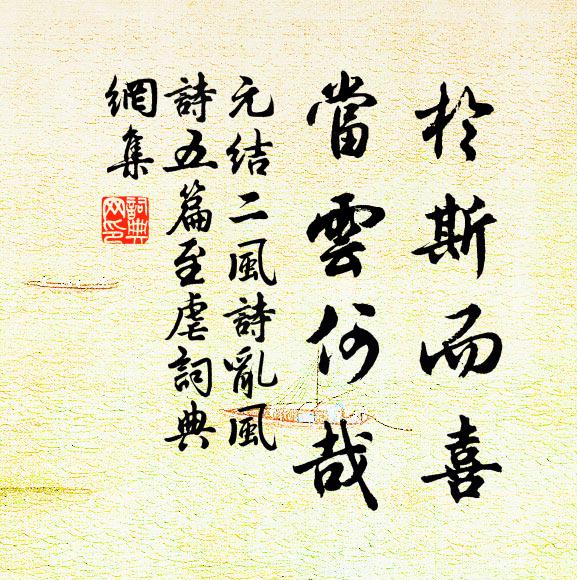 於斯而喜
當雲何哉
元結二風詩亂風
詩五篇至虐詞典
網集
詞典网印